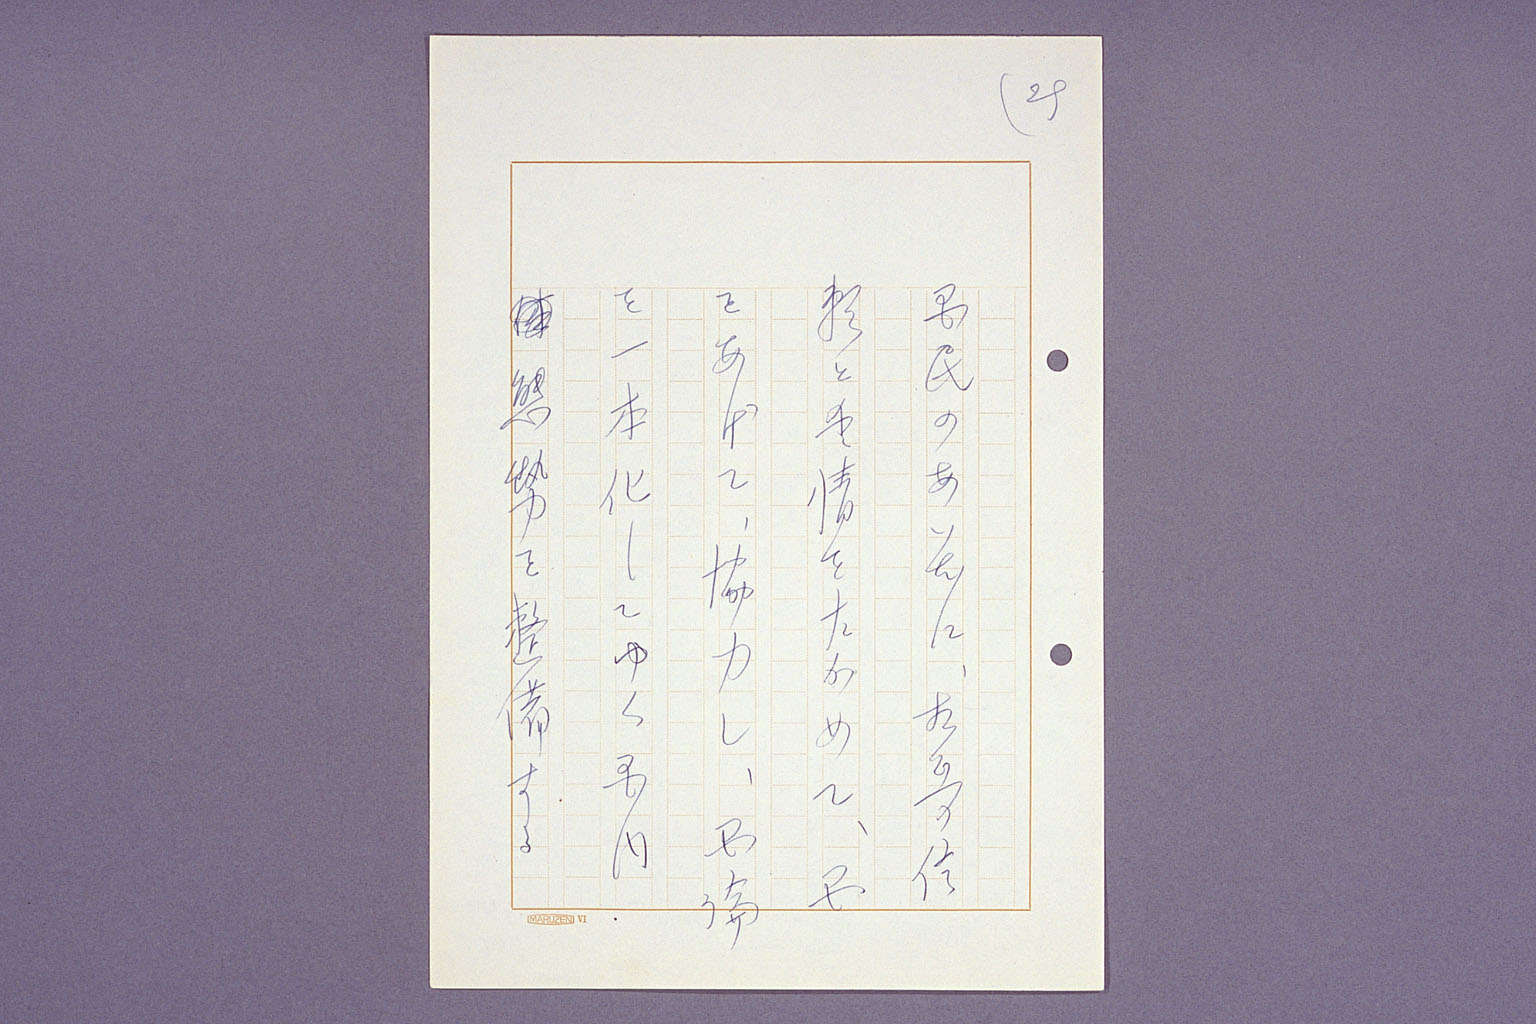 (29
国民のあいだに、相互の信
頼と愛情をたかめて、国
をあげて、協力し、国論
を一本化してゆく国内
態勢を整備する
MARUZEN VI